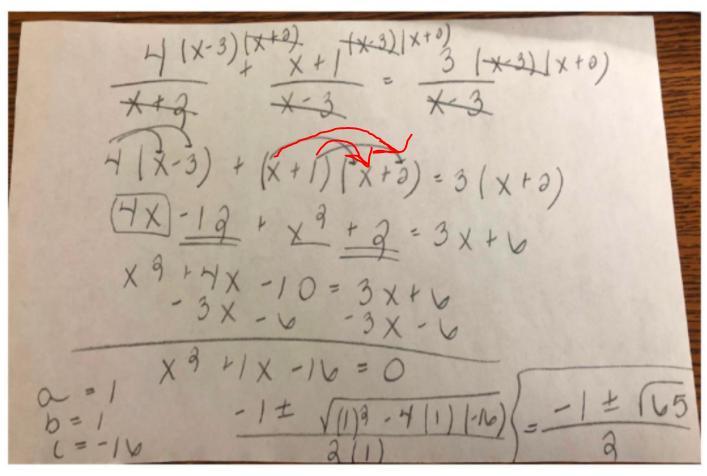 4(x-3)(x+2)/x+2 + x+1(x-3)(x+2)/x-3 = 3(x-3)(x+2)/x-3
4(x-3) + (x+1)(x+2) = 3(x+2)
4x -12 + x² + 2 = 3x+6
x² +4x -10 = 3x+6
-3x -6 -3x -6
x² +1x -16 = 0
a = 1
b = 1
c = -16
-1 ± √(1)² - 4(1)(-16) / 2(1) = -1 ± √65 / 2